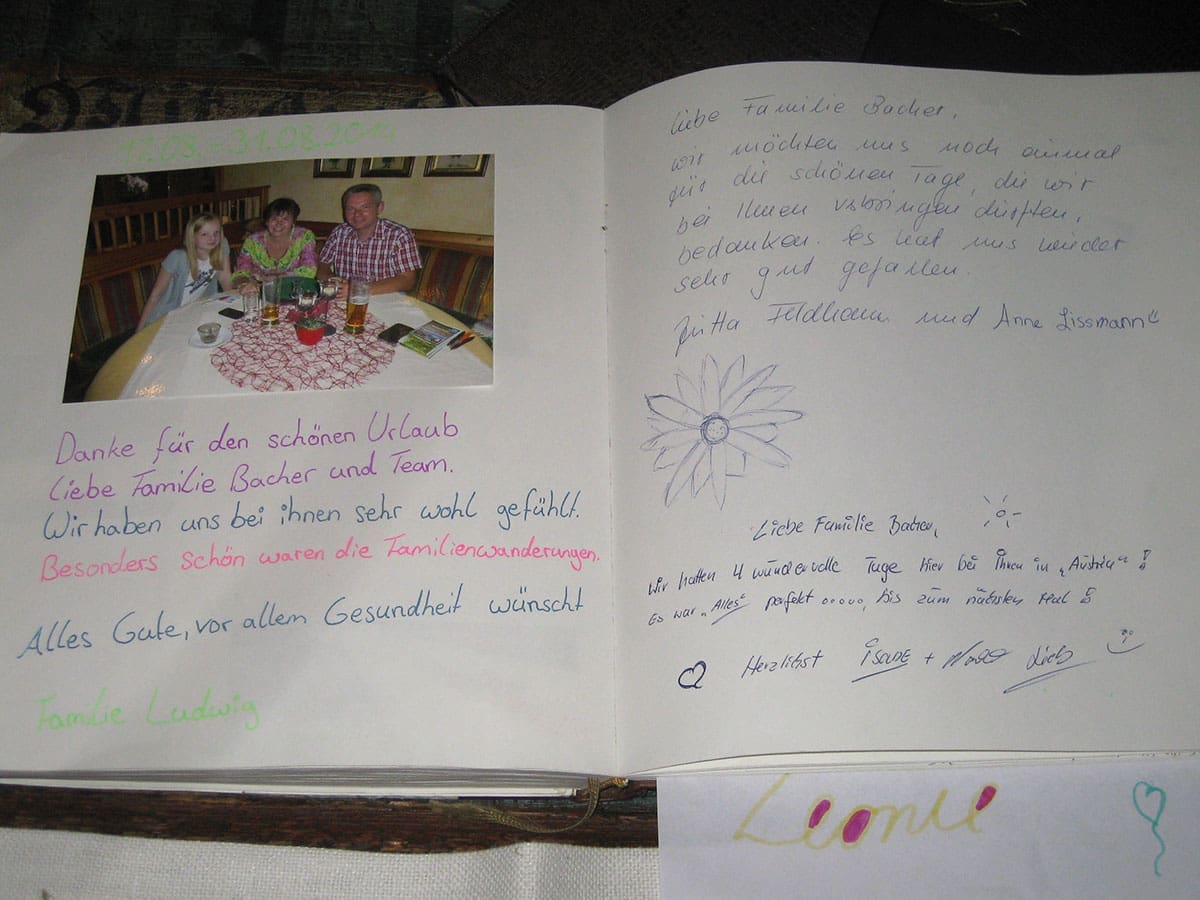 17.08. - 31.08.2014
Danke für den schönen Urlaub
liebe Familie Bacher und Team.
Wir haben uns bei ihnen sehr wohl gefühlt.
Besonders schön waren die Familienwanderungen.
Alles Gute, vor allem Gesundheit wünscht
Familie Ludwig
Liebe Familie Bacher,
wir möchten uns noch einmal
für die schönen Tage, die wir
bei Ihnen verbringen durften,
bedanken. Es hat uns wieder
sehr gut gefallen.
und Anne Lissmann
Liebe Familie Bacher,
Wir hatten 4 wundervolle Tage hier bei Ihnen in "Austria"!
Es war "Alles" perfekt ....., bis zum nächsten Mal!
Herzlichst +
Leonie